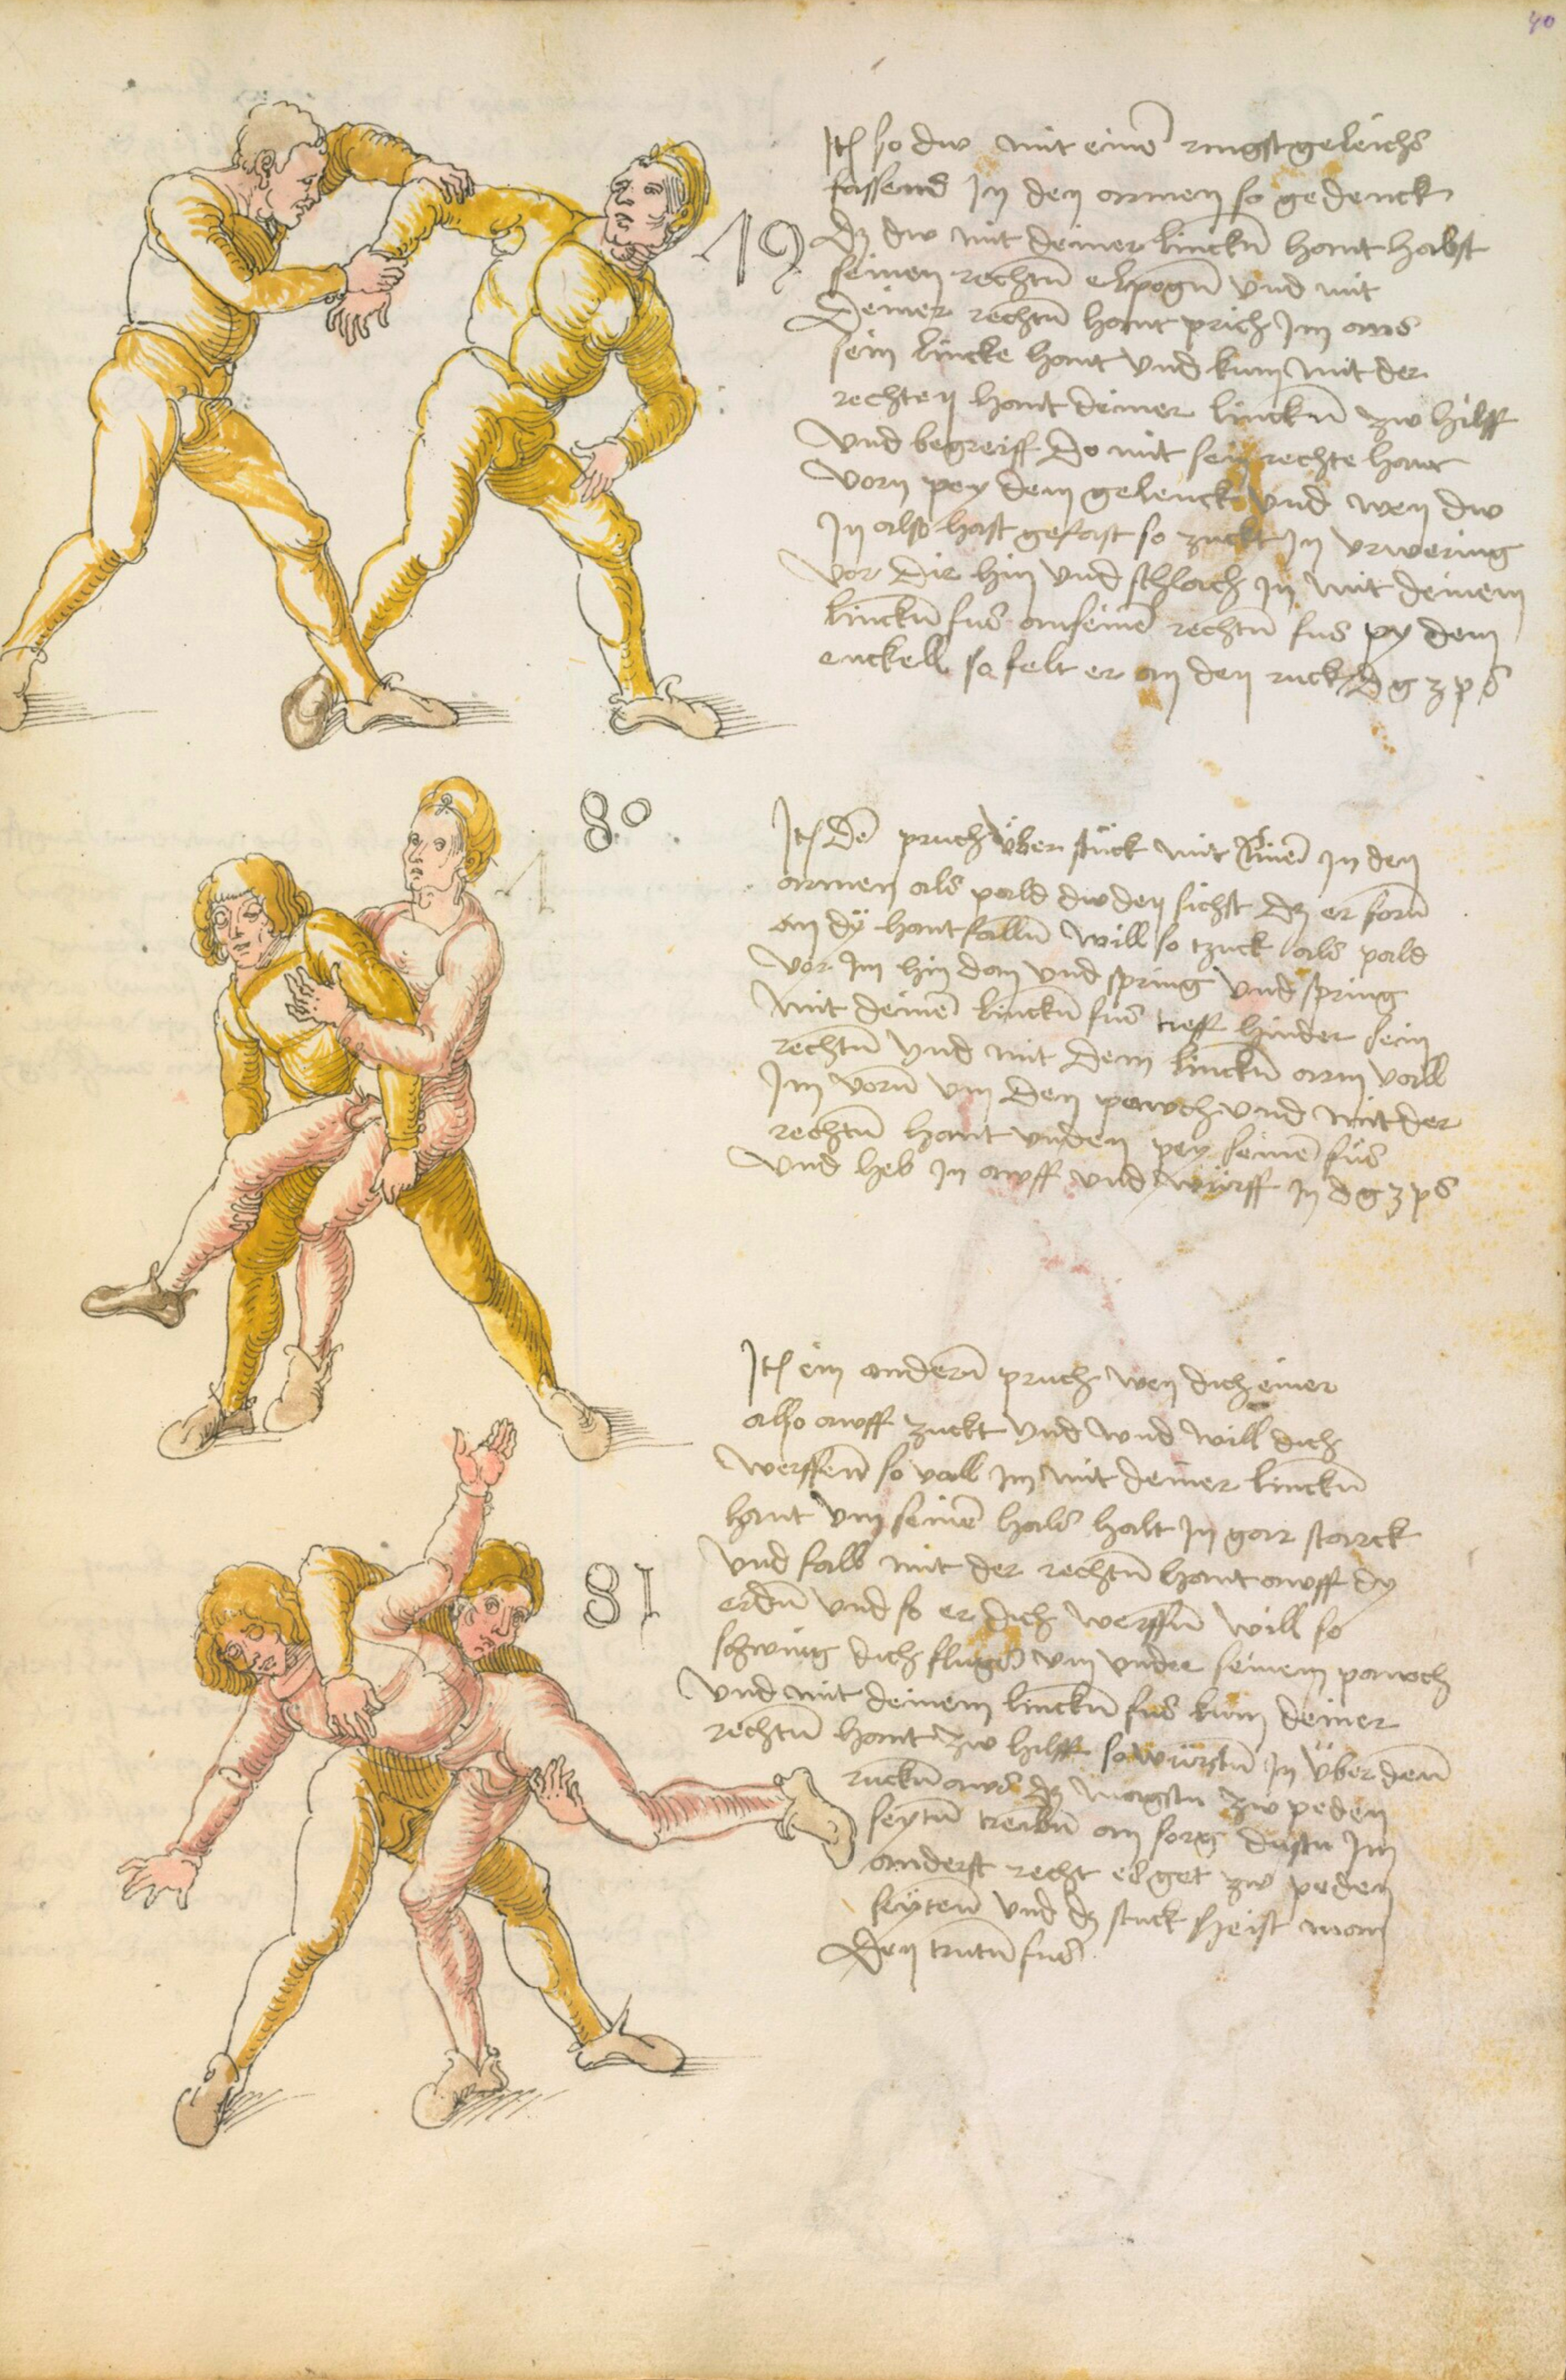 40
Itẽ so dw mit einẽ ringst geleichs
fassens In den armen so gedenck
19 dz dw mit deiner linckñ hant habst
seinen rechtñ elpogñ vnd mit
deiner rechtñ hant prich Im aws
sein lincke hant vnd kum mit der
rechten hant deiner linckñ zw hilff
vnd begreiff do mit sein rechte hant
vorn pey dem gelenck vnd wen dw
In also hast gefast so zuckt In vrwering
vor dir hin vnd schlach In mit deinem
linckñ fus an seinẽ rechtñ fus py dem
enckell so felt er an den ruck d g z p s
80
Itẽ dẽ pruch über stück mit einẽ In den
armen als pald dw den sichst dz er forñ
an dÿ hant fallñ will so tzuck als pald
vor Im hin dan vnd spring vnd spring
mit deinẽ linckñ fus treff hinder sein
rechtñ vnd mit dem linckñ arm vall
Im vorñ vm den pawch vnd mit der
rechtñ hant vnden pey seinẽ fus
vnd heb In awff vnd würff In d g z p s
Itẽ ein anderñ pruch wen dich einer
also awff zuckt vnd vnd will dich
werffenn so vall Im mit deiner linckñ
hant vm seinẽ hals halt In gar starck
vnd fall mit der rechtñ hant awff dy
81 erdñ vnd so er dich werffñ will so
schwing dich flugs vm vnder seinem pawch
vnd mit deinem linckñ fus kum deiner
rechtñ hant zw hilff so würfstu In über denn
ruckñ aws dz magstu zw peden
seytñ treibñ an sorg dustu Im
anderst recht es get zw peden
seytenn vnd dz stuck heist man
den trutñ fus